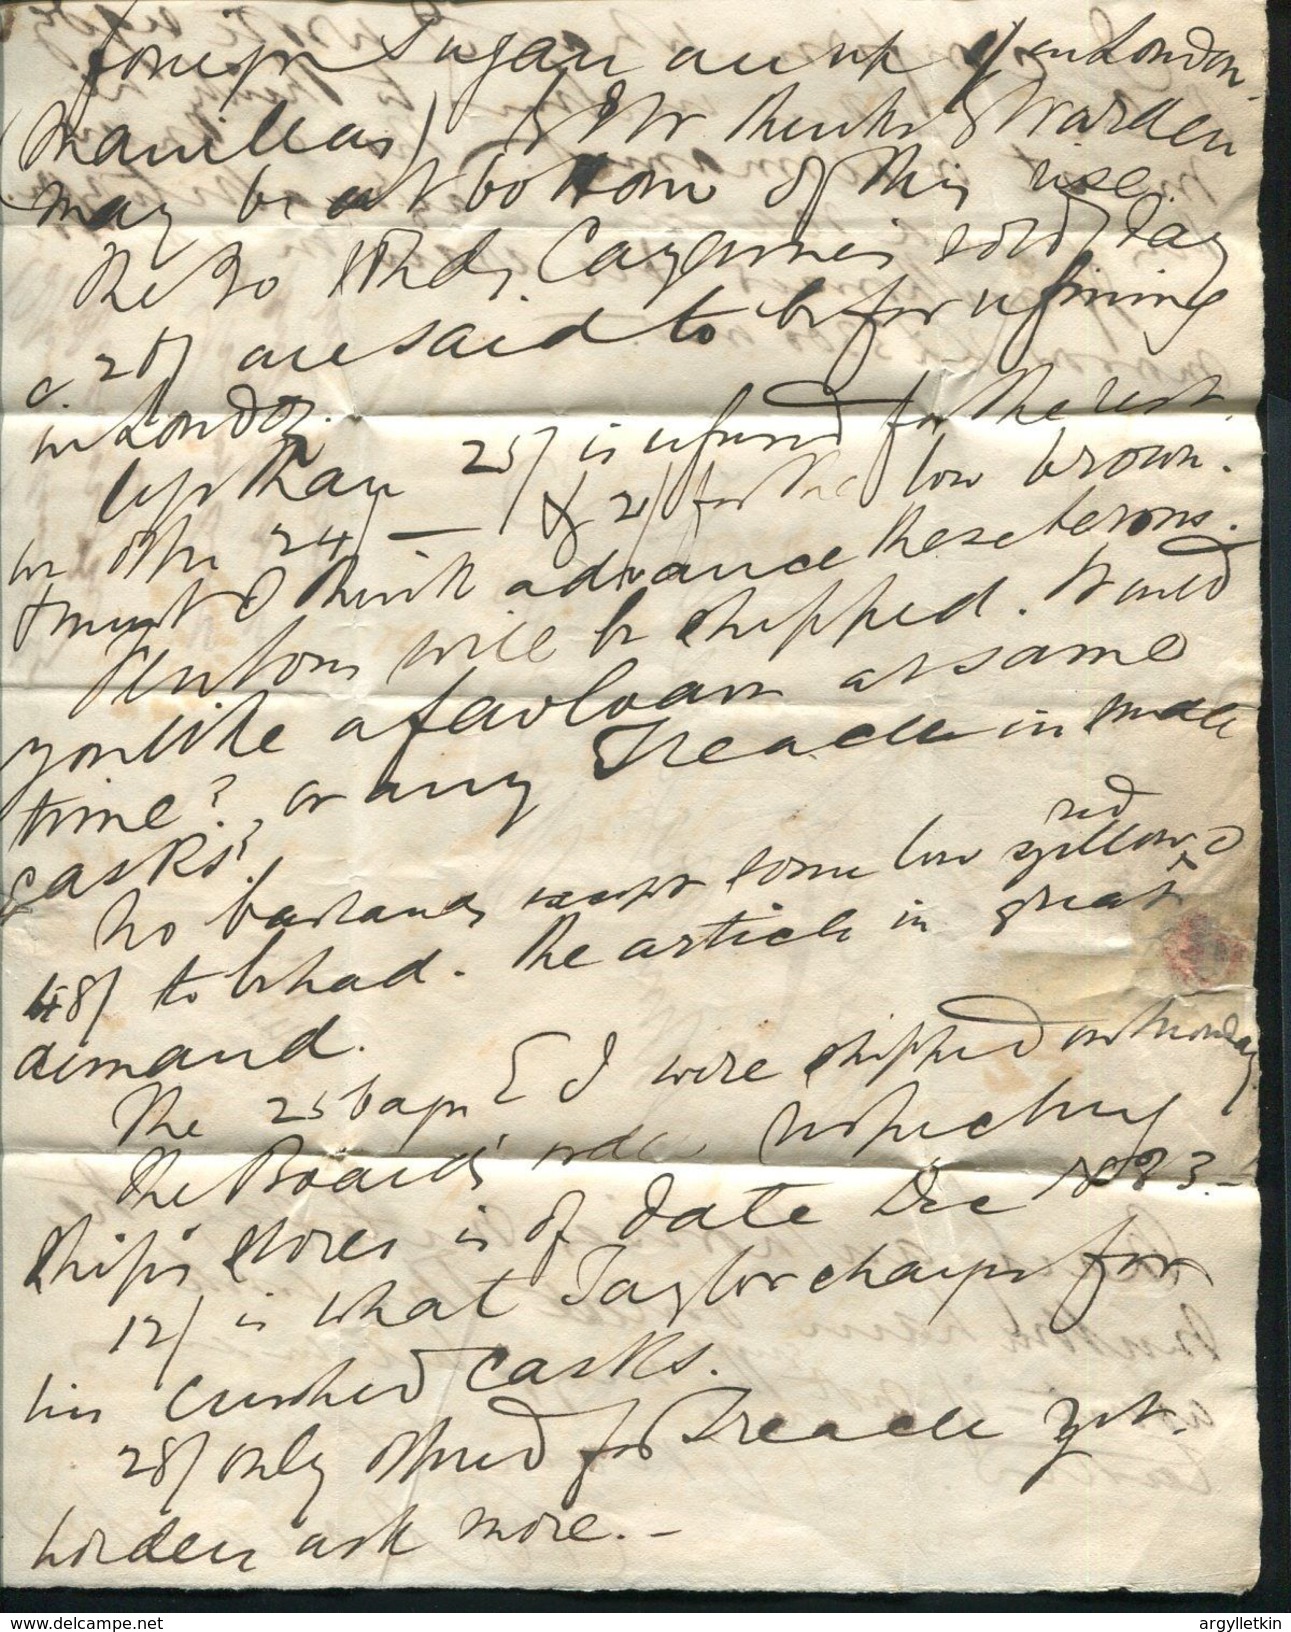 foreign Sugars are up 1/ in London
(Manillas) & Mr thinks Warden
may be at bottom of this rise.
The 30 Hhds Cayennes sold today
a 20/ are said to be for refining
in London.
Upshaw 25/ is refused for the rest.
we offer 24/ — & 21/ for the low brown.
& must I think advance these terms.
will be shipped. Would
you like a few loaves at same
time? or any Treacle in small
casks?
No bastards except some low yellow red
48/ to be had. The article in great
demand.
The 25 bags E I were shipped on Monday
The Boards order respecting
ship's stores is of date Dec 1833. —
12/ is what Taylor charges for
his crushed casks.
28/ only offered for Treacle yet.
holders ask more. —
argylletkin